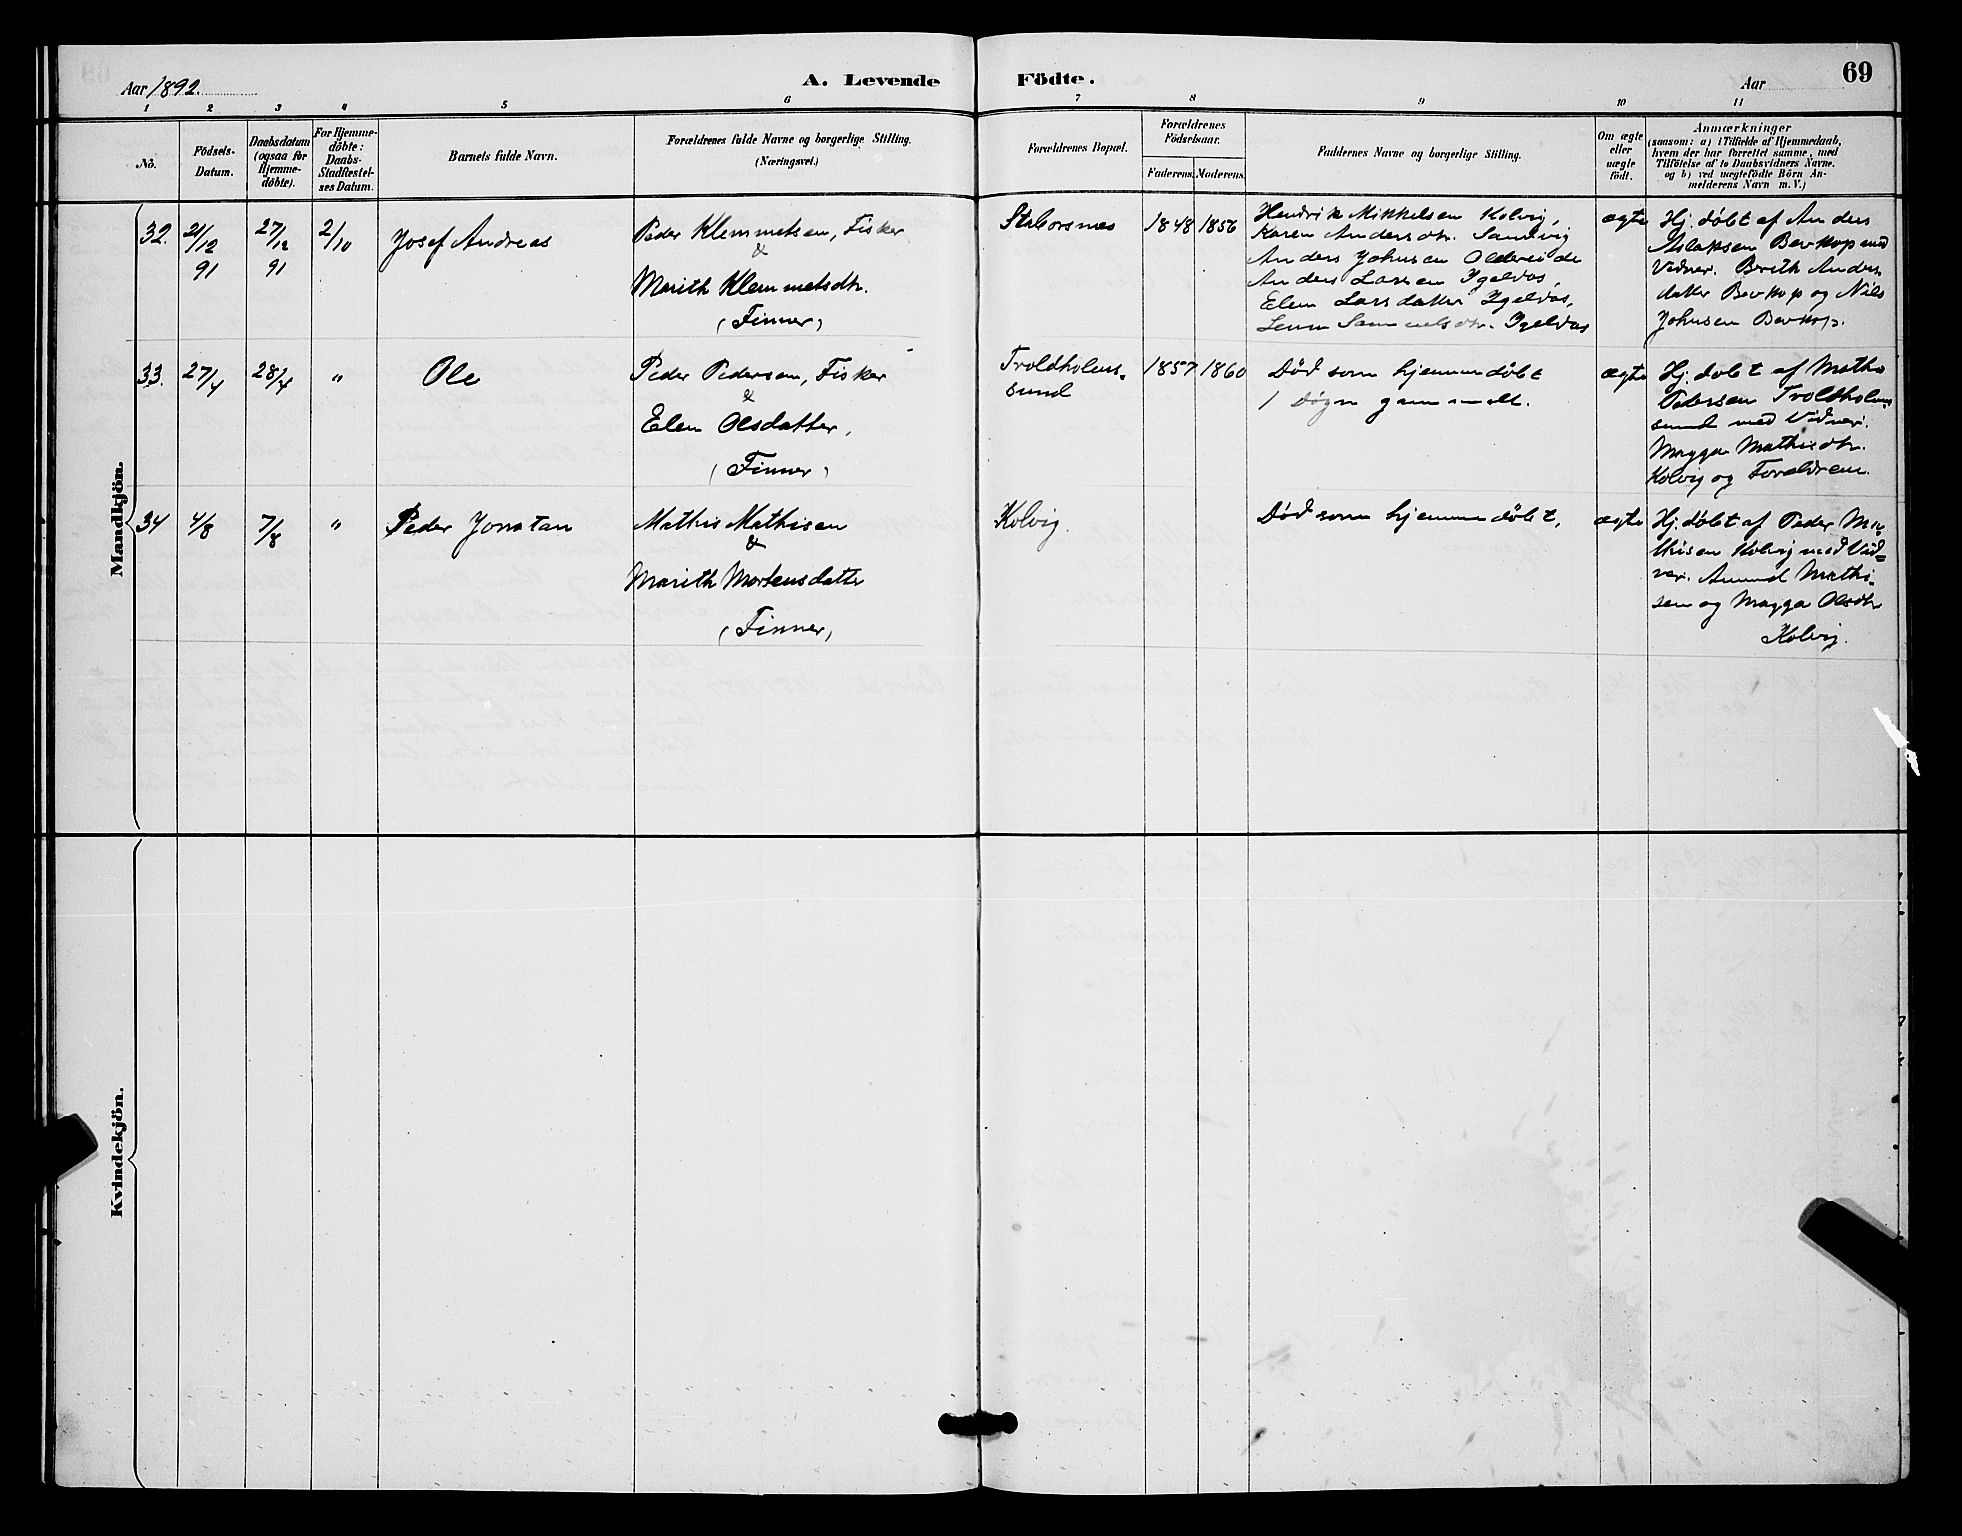 Aar 1892.
A. Levende Födte.
Aar
69
1 2 3 4 5 6 7 8 9 10 11
No.
Födsels-
Datum.
Daabsdatum
(ogsaa for
Hjemme-
döbte).
For Hjemme-
döbte:
Daabs-
Stadfæstel-
ses Datum.
Barnets fulde Navn.
Forældrenes fulde Navne og borgerlige Stilling.
(Næringsvei.)
Forældrenes Bopæl.
Forældrenes
Födselsaar.
Faderens. Moderens.
Faddernes Navne og borgerlige Stilling.
Om ægte
eller
uægte
födt.
Anmærkninger
(saasom: a) i Tilfælde af Hjemmedaab,
hvem der har forrettet samme, med
Tilföielse af to Daabsvidners Navne,
og b) ved uægtefödte Börn An-
melderens Navn m. V.)
Mandkjön.
32.
21/12
91
27/12
91
2/10
Josef Andreas
Peder Klemmetsen, Fisker
&
Marith Klemmetsdtr.
(Finner)
Staborsnes
1848 1856
Henrik Mikkelsen Kolvig,
Karen Andersdtr. Sandvig
Anders Johnsen Oldereide
Anders Larsen Igeldas,
Elen Larsdatter Igeldas,
Samuelsdtr. Igeldas
ægte
Hj. döbt af Anders
Aslaksen Bevkop med
Vidner. Berith Anders
datter Bevkop og Nils
Johnsen Bevkop.
33.
27/4
28/4
"
Ole
Peder Pedersen, Fisker
&
Elen Olsdatter,
(Finner)
Troldholms-
sund
1857 1860
Död som hjemmedöbt
1 Dögn gammelt.
ægte
Hj. döbt af Mathis
Pedersen Troldholms
sund med Vidner.
Magga Mathisdtr.
Kolvig og Forældrene.
34
4/8
7/8
"
Peder Jonatan
Mathis Mathisen
&
Marith Mortensdatter
(Finner)
Kolvig.
Död som hjemmedöbt,
ægte
Hj. döbt af Peder Ma-
thisen Kolvig med Vid-
ner. Amund Mathi-
sen og Magga Olsdtr
Kolvig.
Kvindekjön.